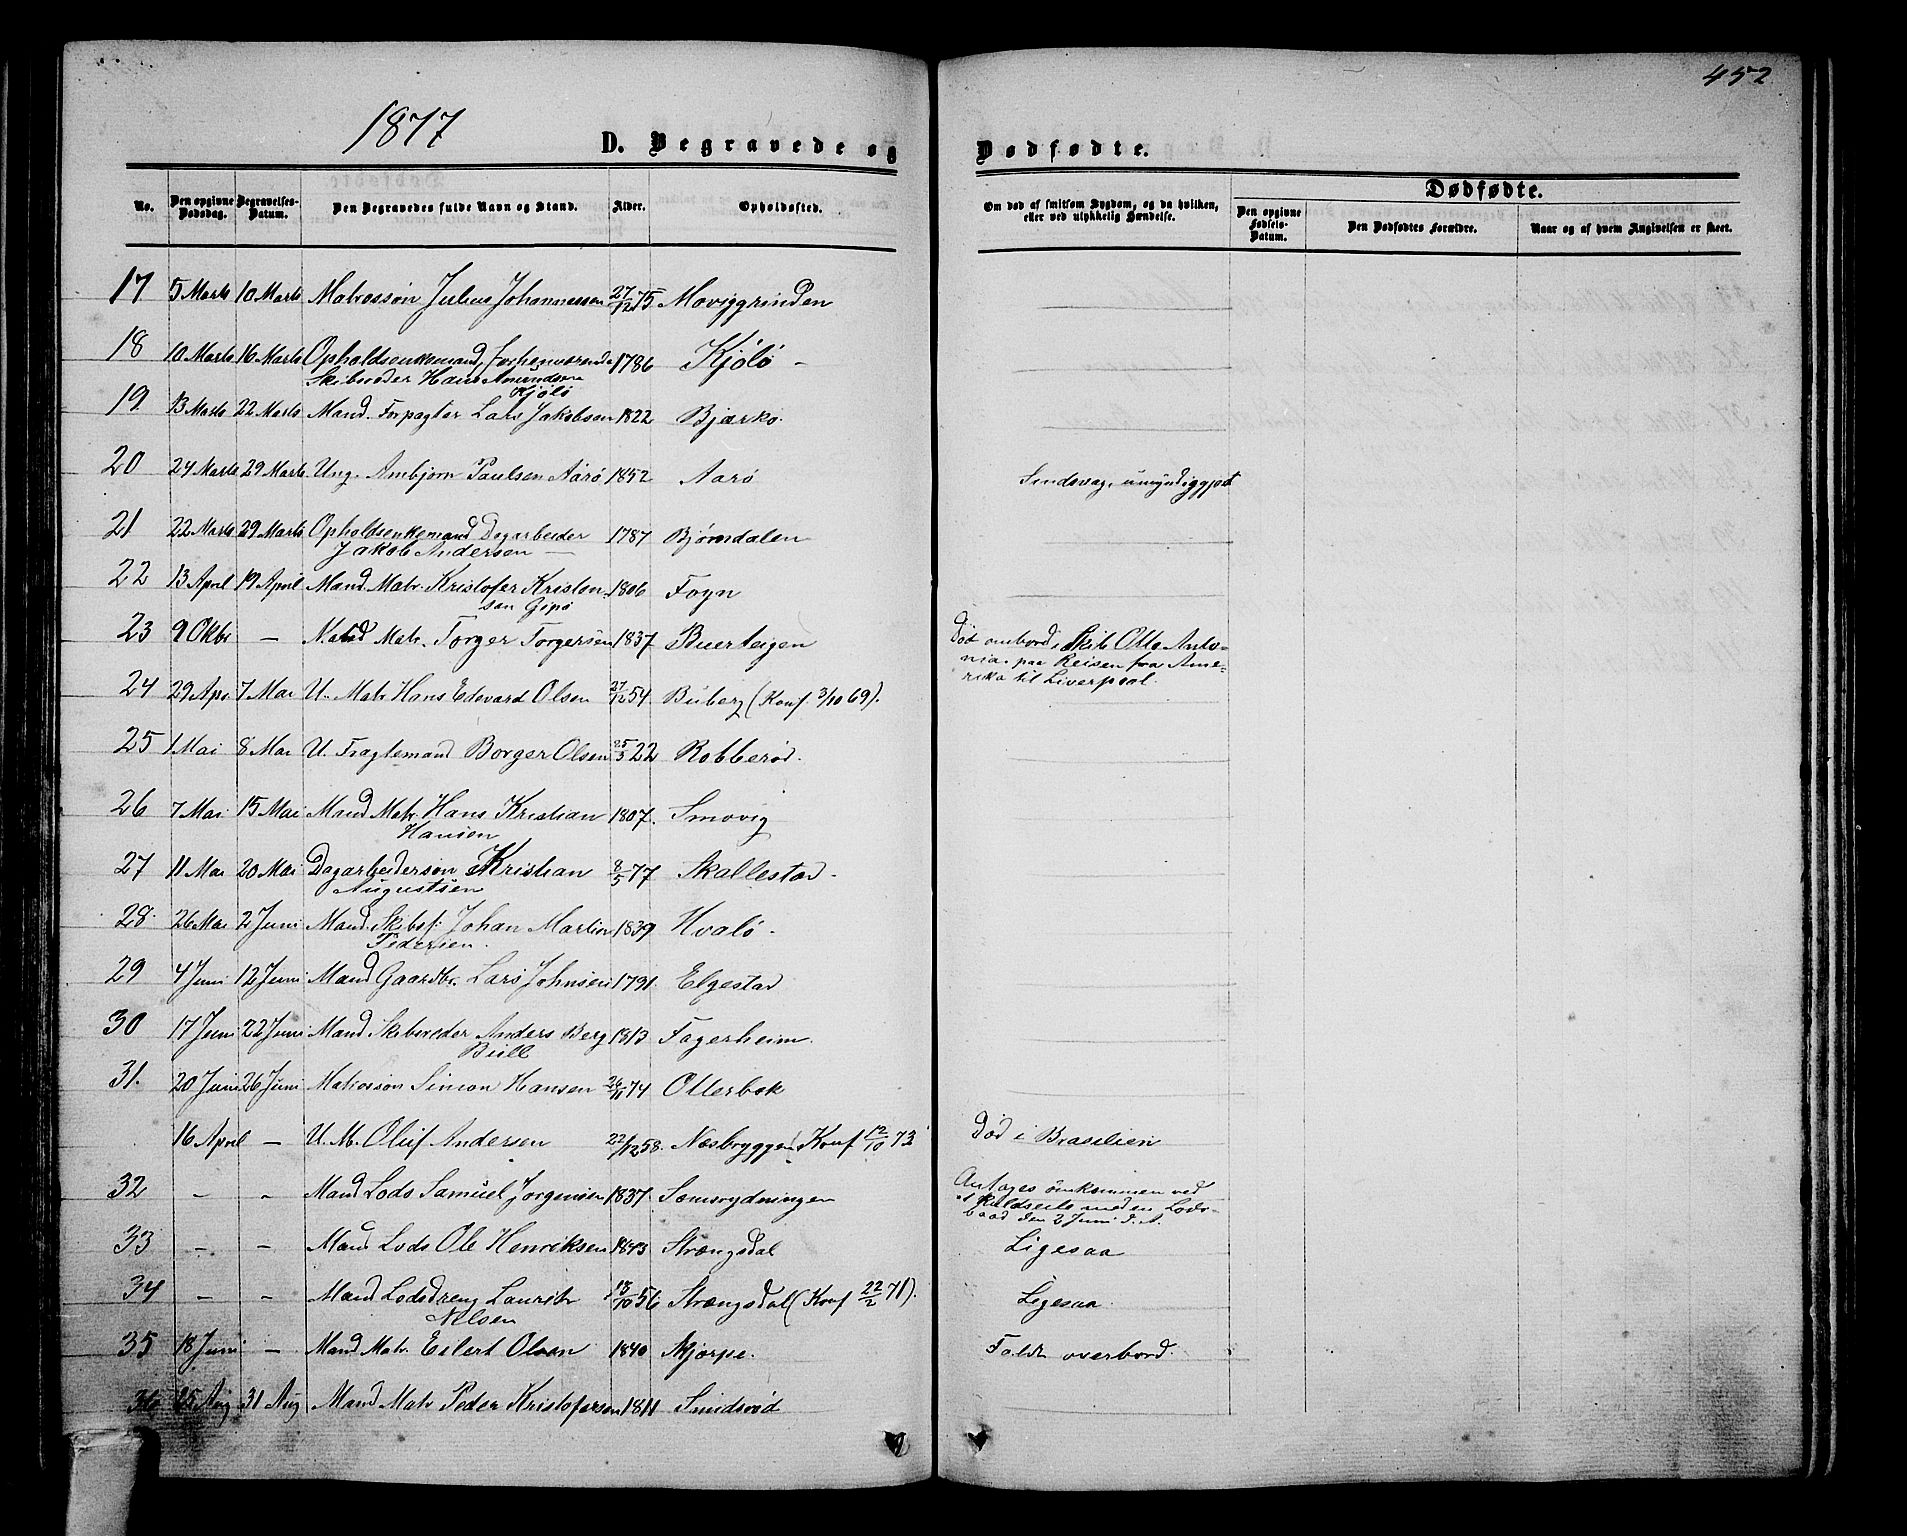 452
1877
D. Begravede og
Dødfødte.
Dødfødte.
No.
Den opgivne Dødsdag.
Begravelses-Datum.
Den Begravedes fulde Navn og Stand.
Alder.
Opholdssted.
Om død af smitsom Sygdom, og da hvilken, eller ved ulykkelig Hændelse.
Den opgivne Fødsels-Datum.
Den Dødfødtes Forældre.
Naar og af hvem Angivelsen er skeet.
17 5 Marts 10 Marts Matrossøn Julius Johannessen 27/12 75 Moviggrinden
18 10 Marts 16 Marts Opholdsenkemand, forhenværende 1786 Kjölö
Skibsreder Hans Amundsen
Kjölö
19 13 Marts 22 Marts Mand. Forpagter Lars Jakobsen 1822 Bjærkö
20 24 Marts 29 Marts Ung. Arnbjørn Paulsen Aårö 1852 Aarö Sindsvag, umyndiggjort
21 22 Marts 29 Marts Opholdsenkemand Dagarbeider 1787 Bjørndalen
Jakob Andersen
22 13 April 19 April Mand Matr. Kristofer Kristen 1806 Foyn
sen Gipö
23 9 Oktbr — Mand Matr. Torger Torgersen 1837 Buerteigen Död ombord i Skib Otto Anto-
nia paa Reisen fra Ame-
rika til Liverpool.
24 29 Apr 7 Mai U. Matr Hans Edevard Olsen 27/12 54. Buberg (Konf. 3/10 69).
25 1 Mai 8 Mai U. Fragtemand Borger Olsen 25/3 22 Robberöd.
26 7 Mai 15 Mai Mand Matr. Hans Kristian 1807. Smovig
Hansen
27 11 Mai 20 Mai Dagarbeidersøn Kristian 8/5 77 Skallestad.
Augustsen
28. 26 Mai 2 Juni Mand Skibsf. Johan Martin 1839 Hvalö.
Pedersen.
29 4 Juni 12 Juni Mand Gaardbr. Lars Johnsen 1791. Elgestad
30 17 Juni 22 Juni Mand Skibsreder Anders Berg 1813 Fagerheim.
Bull
31. 20 Juni 26 Juni Matrossøn Simon Hansen 26/11 74 Otterbæk
16 April — U. M. Oluf Andersen 22/12 58. Næsbryggen Konf 12/10 73 Död i Brasilien
32 — — Mand Lods Samuel Jørgensen 1837. Sæmsrydningen Antages omkommen ved
et Kuldseile med en Lods-
baad den 2 Juni d. A.
33 — — Mand Lods Ole Henriksen 1843 Strængsdal Ligesaa
34 — — Mand Lodsdreng Lauritz 18/10 56 Strængsdal (Konf 22/2 71). Ligesaa.
Nilsen
35 18 Juni — Mand Matr. Eilert Olsen 1840 Skjærpe. Faldt overbord.
36 25 Aug 31 Aug Mand Matr Peder Kristofersen 1811 Smidsröd